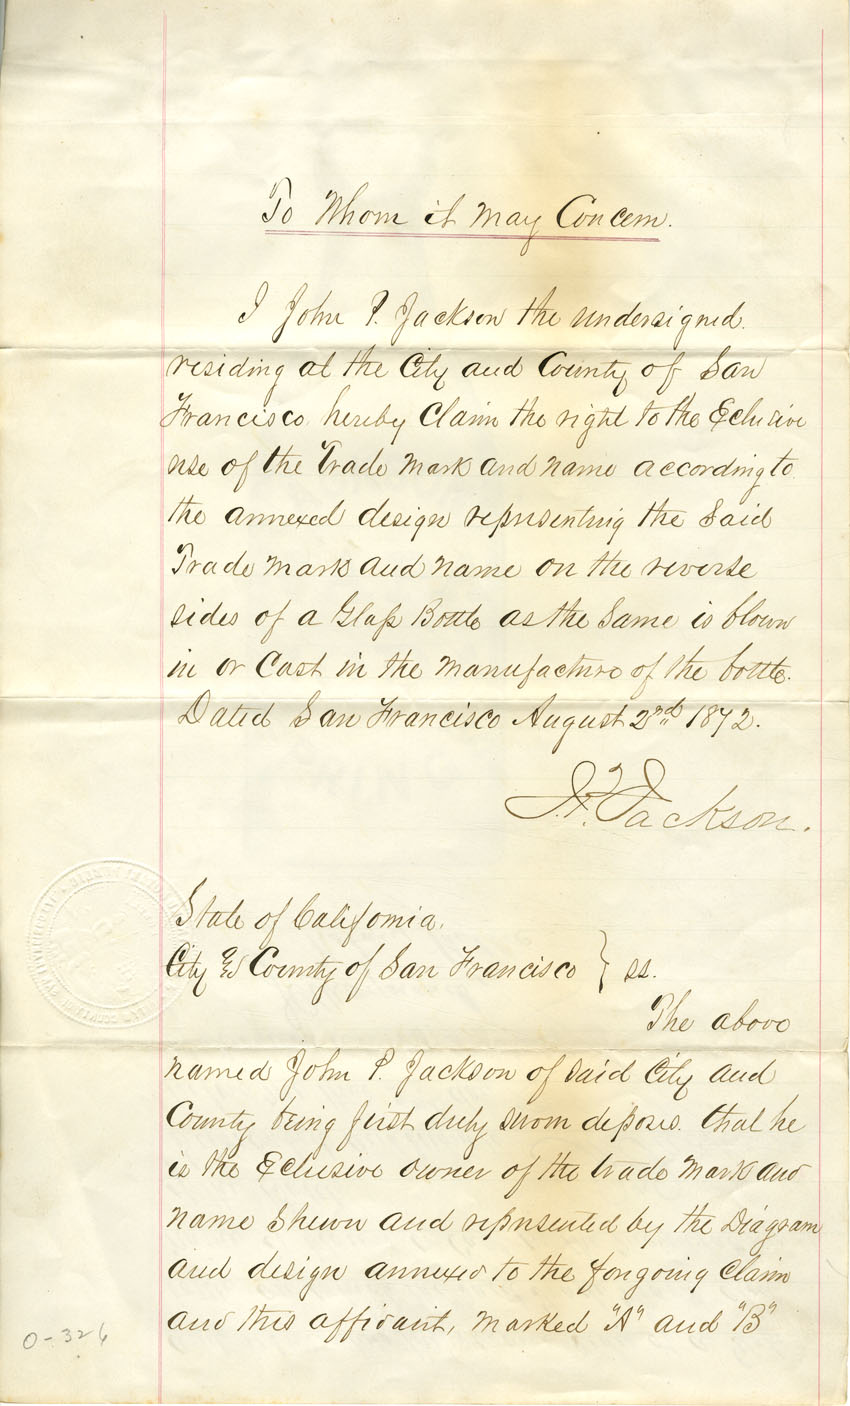 To Whom it May Concern.
I John P. Jackson the undersigned.
residing at the City and County of San
Francisco. hereby Claim the right to the Eclusive
use of the Trade Mark and name according to
the annexed design representing the Said
Trade Mark and name on the reverse
sides of a Glass Bottle as the Same is blown
in or Cast in the manufacture of the bottle.
Dated San Francisco August 2nd 1872.
J. P. Jackson.
State of California.
City & County of San Francisco } ss.
The above
named John P. Jackson of said City and
County being first duly sworn deposes. that he
is the Eclusive owner of the trade Mark and
name Shewn and represented by the Diagram
and design annexed to the foregoing Claim
and this affidavit, marked "A" and "B"
0-326